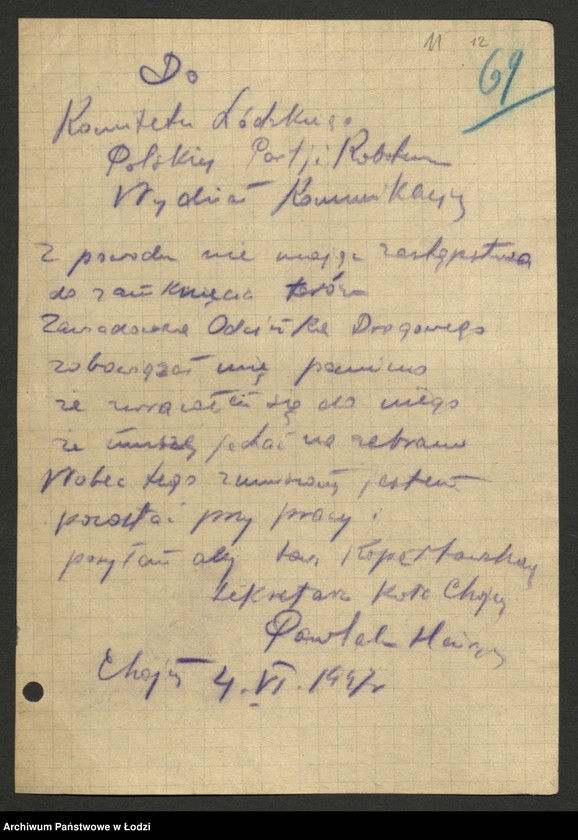 11 12
69
Do
Komitetu Łódzkiego
Polskiej Partji Robotn
Wydział Komunikacyj
Z powodu nie mając zastępstwa
do zamknięcia torów
Zawiadowca Odcinka Drogowego
zobowiązał mię pomimo
że zwracałem się do niego
że muszę jechać na zebranie
Wobec tego zmuszony jestem
pozostać przy pracy i
tow.
Sekretarz Koła Chojny
Pawlak
Chojny 4.VI.1947r
Archiwum Państwowe w Łodzi